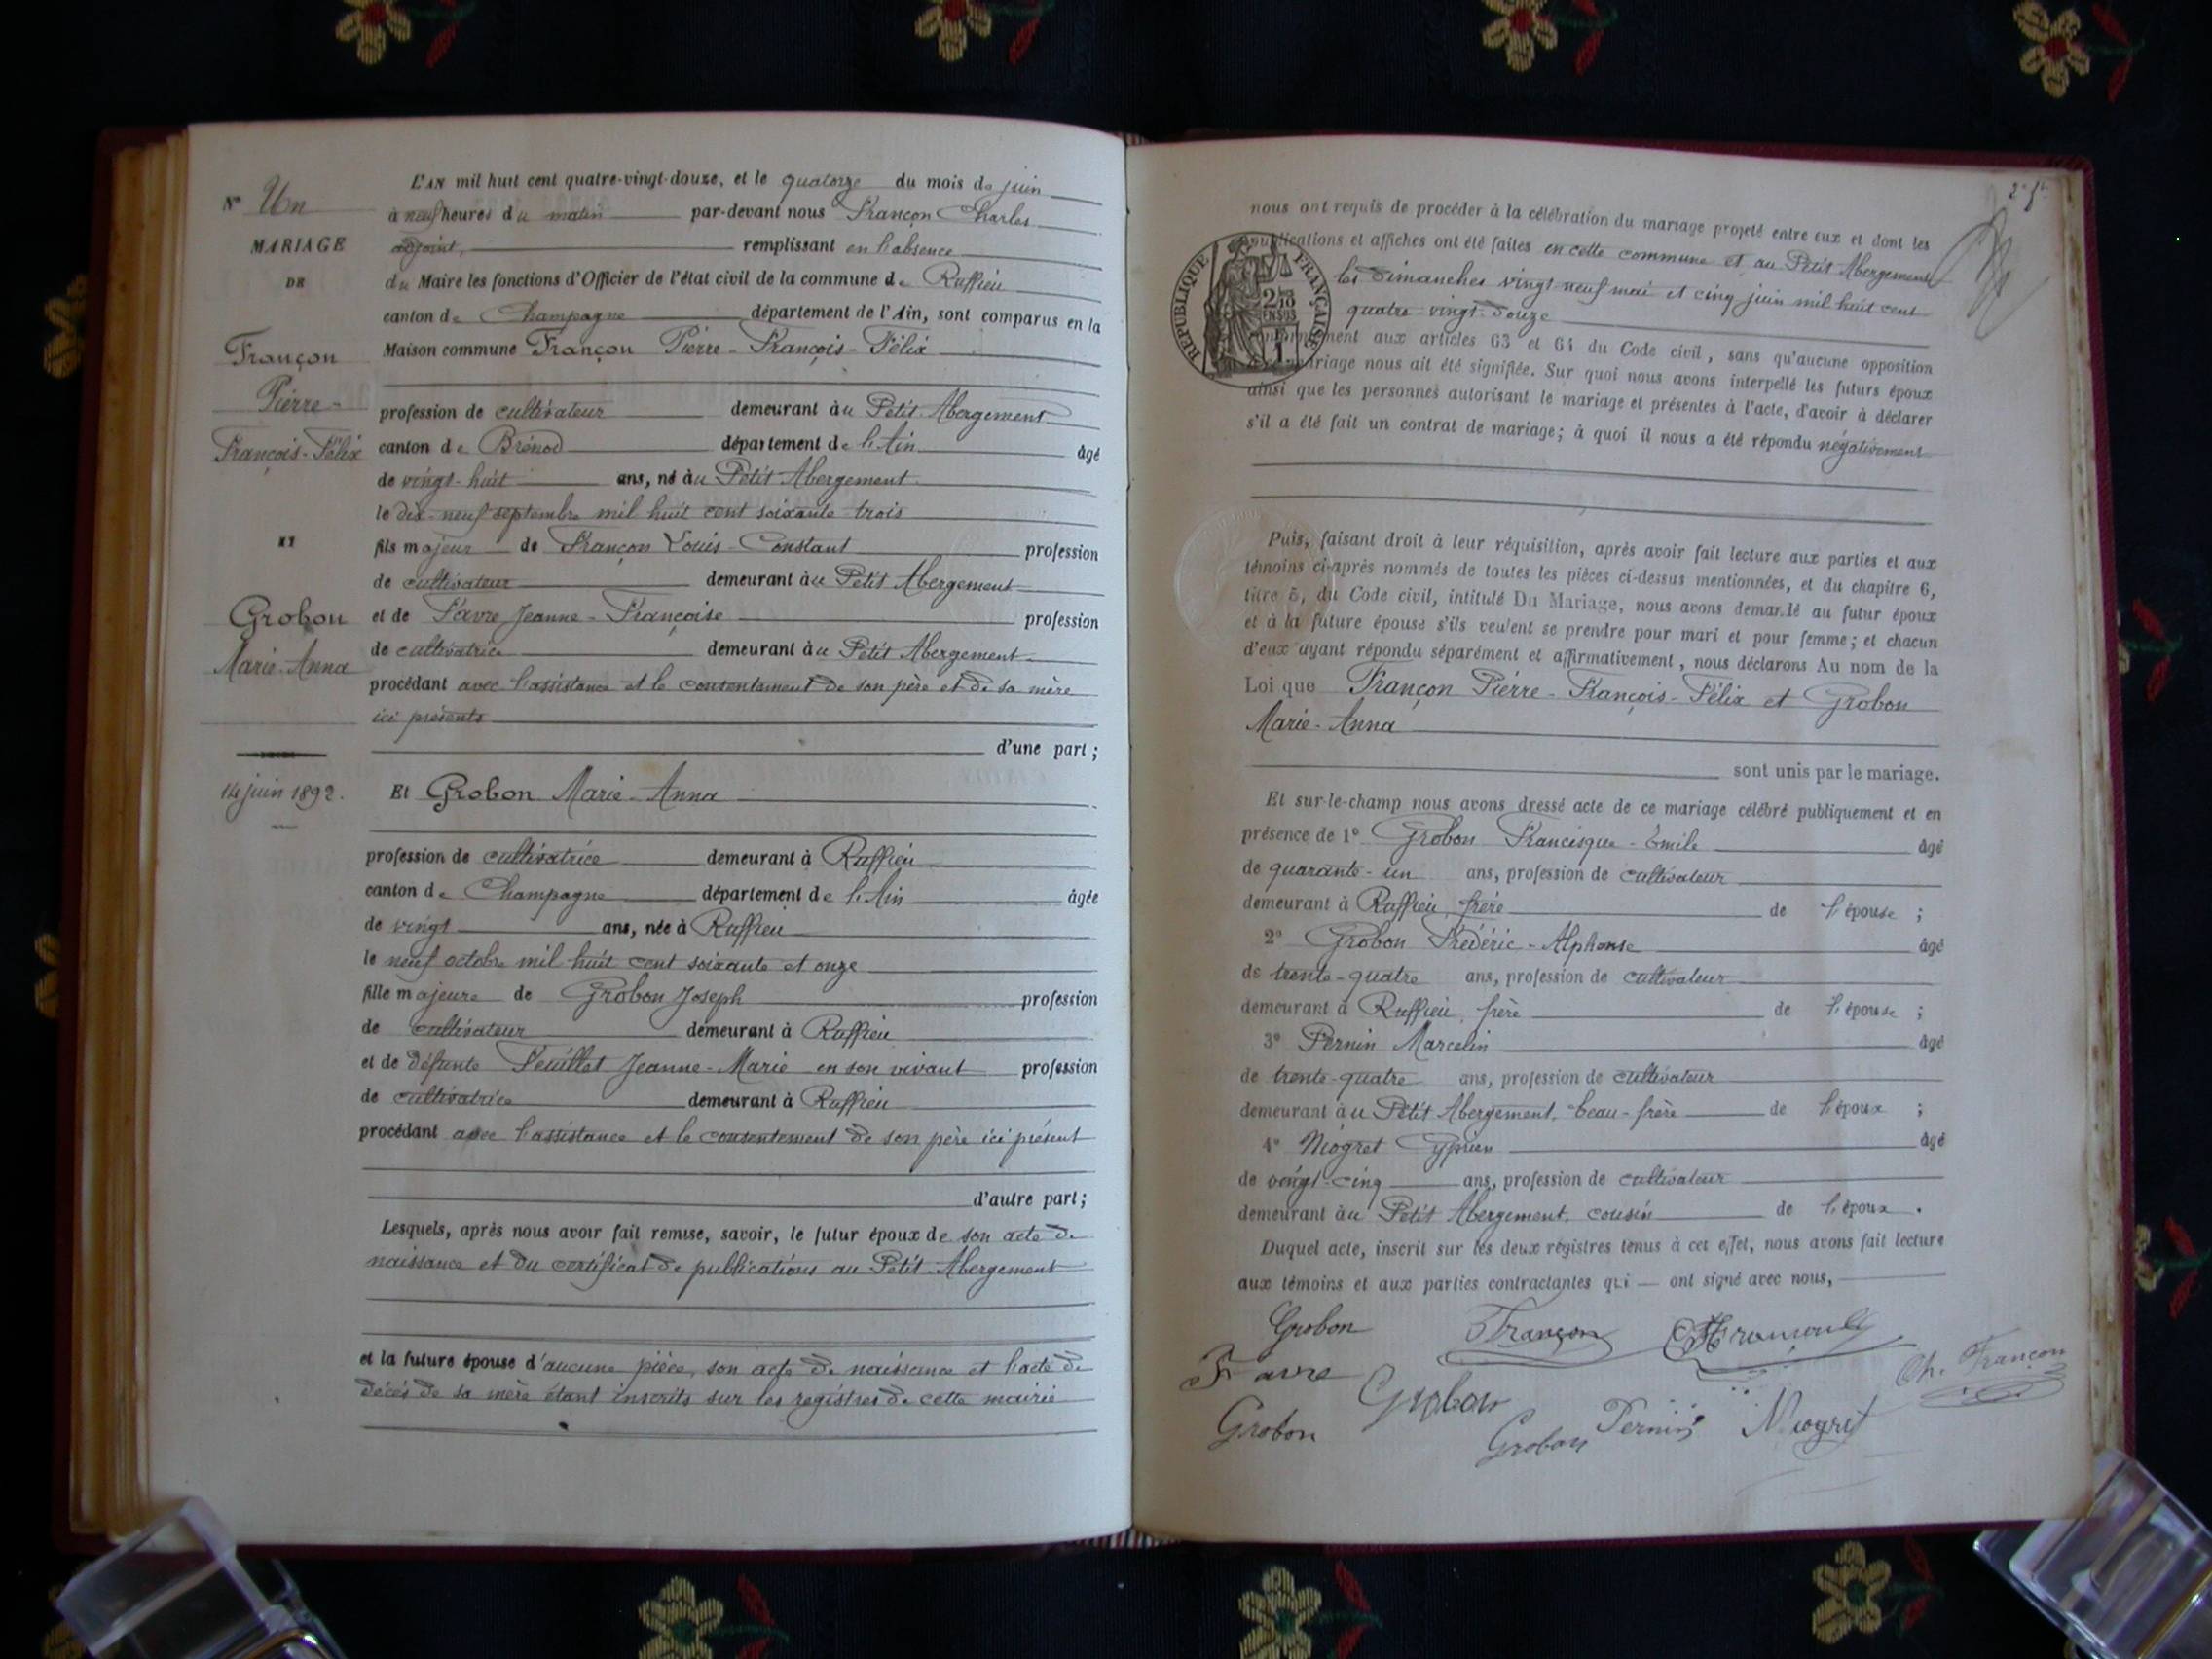 L'AN mil huit cent quatre-vingt-douze, et le quatorze du mois de juin
N° Un
à neuf heures du matin par-devant nous Françon Charles
MARIAGE
adjoint, remplissant en l'absence
DE
du Maire les fonctions d'Officier de l'état civil de la commune de Ruffieu
canton de Champagne département de l'Ain, sont comparus en la
Françon
Maison commune Françon Pierre-François-Félix
Pierre-
profession de cultivateur demeurant au Petit Abergement
François-Félix
canton de Brénod département de l'Ain âgé
de vingt-huit ans, né au Petit Abergement
le dix-neuf septembre mil huit cent soixante-trois
ET
fils majeur de Françon Louis-Constant profession
de cultivateur demeurant au Petit Abergement
Grobon
et de Favre Jeanne-Françoise profession
Marie-Anna
de cultivatrice demeurant au Petit Abergement
procédant avec l'assistance et le consentement de son père et de sa mère
ici présents
d'une part ;
14 juin 1892.
Et Grobon Marie-Anna
profession de cultivatrice demeurant à Ruffieu
canton de Champagne département de l'Ain âgée
de vingt ans, née à Ruffieu
le neuf octobre mil huit cent soixante et onze
fille majeure de Grobon Joseph profession
de cultivateur demeurant à Ruffieu
et de défunte Feuillet Jeanne-Marie en son vivant profession
de cultivatrice demeurant à Ruffieu
procédant avec l'assistance et le consentement de son père ici présent
d'autre part ;
Lesquels, après nous avoir fait remise, savoir, le futur époux de son acte de
naissance et du certificat de publications au Petit-Abergement
et la future épouse d'aucune pièce, son acte de naissance et l'acte de
décès de sa mère étant inscrits sur les registres de cette mairie
nous ont requis de procéder à la célébration du mariage projeté entre eux et dont les
publications et affiches ont été faites en cette commune et au Petit Abergement
les dimanches vingt-neuf mai et cinq juin mil huit cent
quatre-vingt-douze
RÉPUBLIQUE FRANÇAISE
conformément aux articles 63 et 64 du Code civil, sans qu'aucune opposition
mariage nous ait été signifiée. Sur quoi nous avons interpellé les futurs époux
ainsi que les personnes autorisant le mariage et présentes à l'acte, d'avoir à déclarer
s'il a été fait un contrat de mariage ; à quoi il nous a été répondu négativement
Puis, faisant droit à leur réquisition, après avoir fait lecture aux parties et aux
témoins ci-après nommés de toutes les pièces ci-dessus mentionnées, et du chapitre 6,
titre 5, du Code civil, intitulé Du Mariage, nous avons demandé au futur époux
et à la future épouse s'ils veulent se prendre pour mari et pour femme ; et chacun
d'eux ayant répondu séparément et affirmativement, nous déclarons Au nom de la
Loi que Françon Pierre-François-Félix et Grobon
Marie-Anna
sont unis par le mariage.
Et sur-le-champ nous avons dressé acte de ce mariage célébré publiquement et en
présence de 1° Grobon Francisque-Émile âgé
de quarante-un ans, profession de cultivateur
demeurant à Ruffieu, frère de l'épouse ;
2° Grobon Frédéric-Alphonse âgé
de trente-quatre ans, profession de cultivateur
demeurant à Ruffieu, frère de l'épouse ;
3° Pernin Marcelin âgé
de trente-quatre ans, profession de cultivateur
demeurant au Petit Abergement, beau-frère de l'époux ;
4° Niogret Cyprien âgé
de vingt-cinq ans, profession de cultivateur
demeurant au Petit Abergement, cousin de l'époux.
Duquel acte, inscrit sur les deux registres tenus à cet effet, nous avons fait lecture
aux témoins et aux parties contractantes qui — ont signé avec nous,
Grobon Françon
Favre Grobon Ch. Françon
Grobon Grobon Pernin Niogret